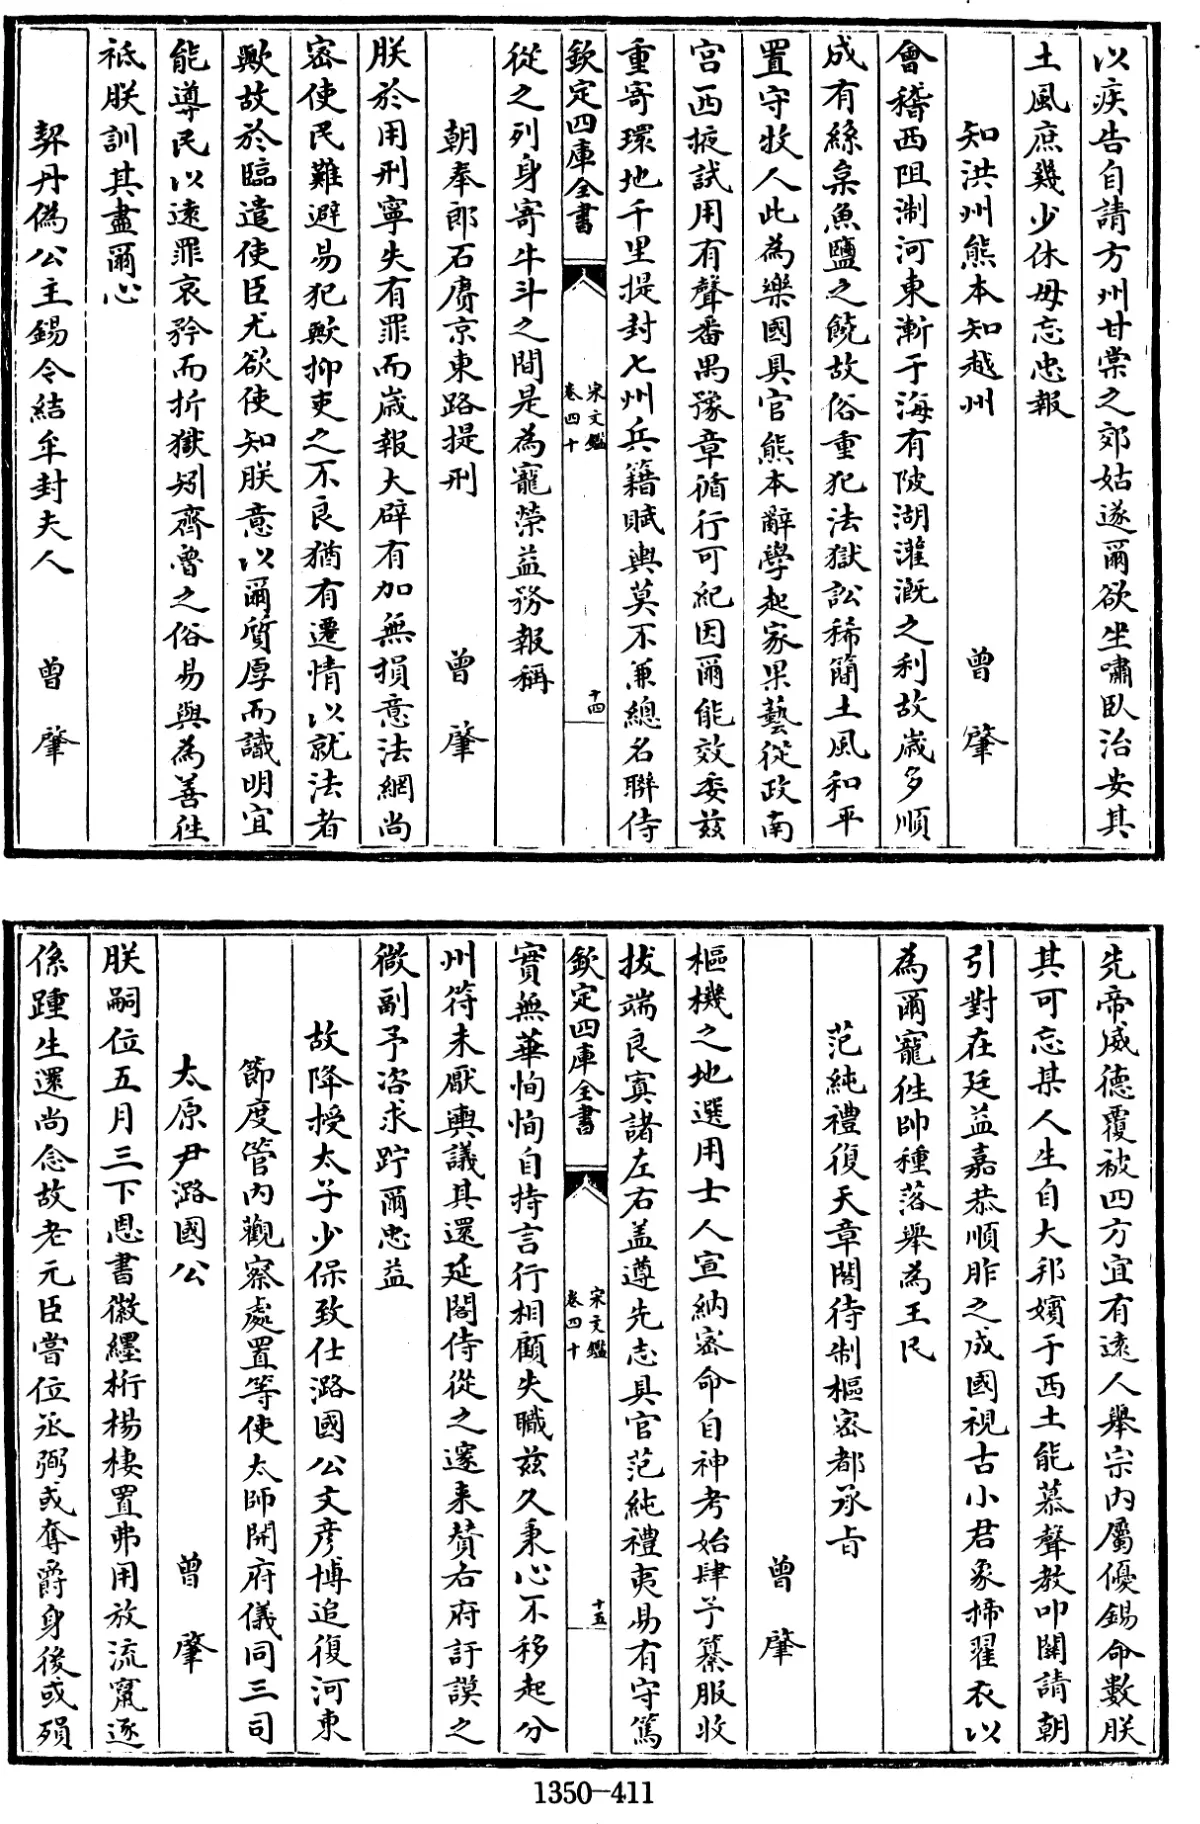 以疾告自請方州甘棠之郊姑遂爾欲坐嘯臥治安其
土風庶幾少休毋忘忠報
知洪州熊本知越州 曾肇
會稽西阻淛河東漸于海有陂湖灌溉之利故歲多順
成有絲枲魚鹽之饒故俗重犯法獄訟稀簡土風和平
置守牧人此為樂國具官熊本辭學起家果藝從政南
宮西掖試用有聲番禺豫章循行可紀因爾能效委兹
重寄環地千里提封七州兵籍賦輿莫不兼總名聯侍
欽定四庫全書 宋文鑑 卷四十 十四
從之列身寄牛斗之間是為寵榮益務報稱
朝奉郎石賡京東路提刑 曾肇
朕於用刑寧失有罪而歲報大辟有加無損意法網尚
密使民難避易犯歟抑吏之不良猶有遷情以就法者
歟故於臨遣使臣尤欲使知朕意以爾質厚而識明宜
能導民以遠罪哀矜而折獄矧齊魯之俗易與為善往
祗朕訓其盡爾心
契丹偽公主錫令結牟封夫人 曾肇
先帝威德覆被四方宜有遠人舉宗内屬優錫命數朕
其可忘某人生自大邦嬪于西土能慕聲教叩關請朝
引對在廷益嘉恭順胙之成國視古小君象揥翟衣以
為爾寵往帥種落舉為王民
范純禮復天章閣待制樞密都承旨
曾肇
樞機之地選用士人宣納密命自神考始肆予纂服收
拔端良寘諸左右盖遵先志具官范純禮夷易有守篤
欽定四庫全書 宋文鑑 卷四十 十五
實無華恂恂自持言行相顧失職兹久秉心不移起分
州符未厭輿議其還延閣侍從之邃來賛右府訏謨之
微副予咨求貯爾忠益
故降授太子少保致仕潞國公文彦博追復河東
節度管内觀察處置等使太師開府儀同三司
太原尹潞國公 曾肇
朕嗣位五月三下恩書徽纆桁楊棲置弗用放流竄逐
係踵生還尚念故老元臣嘗位丞弼或奪爵身後或殞
1350-411